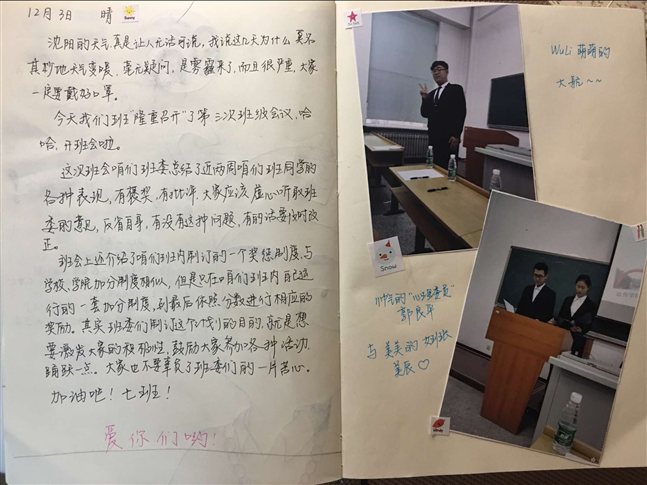 12月3日 晴
Sunny
沈阳的天气真是让人无话可说，我说这几天为什么莫名
其妙地天气变暖，毫无疑问，是雾霾来了，而且很严重，大家
一定要戴好口罩。
今天我们班“隆重召开”了第三次班级会议，哈
哈，开班会啦。
这次班会咱们班委总结了近两周咱们班同学的
各种表现，有褒奖，有批评，大家应该虚心听取班
委的意见，反省自身，有没有这种问题，有的话要及时改
正。
班会上还介绍了咱们班内制订的一个奖惩制度，与
学校、学院加分制度相似，但是只在咱们班内自己运
行的一套加分制度，到最后依照分数进行相应的
奖励。其实班委们制订这个计划的目的，就是想
要激发大家的积极性，鼓励大家参加各种活动，
踊跃一点。大家也不要辜负了班委们的一片苦心。
加油吧！七班！
爱你们哟！
WuLi 萌萌的
大航~~
Snow
帅气的“心理委员”
郭良平
与 美美的 女班长
美辰♡